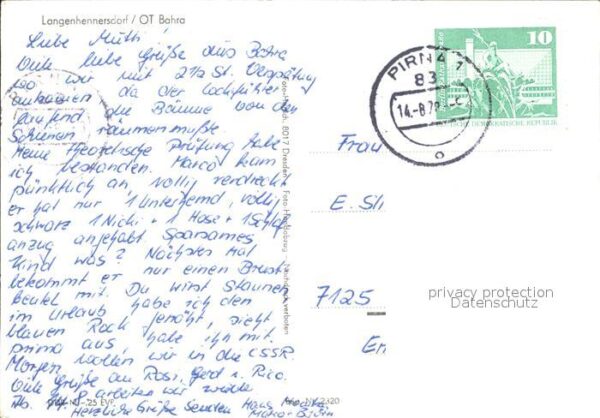 Langenhennersdorf / OT Bahra
Liebe Mutti!
Viele liebe Grüße aus Bahra
wo wir mit 2 1/2 St. Verspätung
ankamen da der Lockführer
laufend die Bäume von den
Schienen räumen mußte.
Meine Theoretische Prüfung habe
ich bestanden. Marco kam
pünktlich an, völlig verdreckt
er hat nur 1 Unterhemd, völlig
schwarz 1 Nicki + 1 Hose + 1 Schlaf
anzug angehabt Sparsames
Kind was? Nächstes Mal
bekommt er nur einen Brust
beutel mit. Du wirst staunen
im Urlaub habe ich den
blauen Rock genäht, sieht
prima aus, habe ihn mit.
Morgen wollen wir in die CSSR.
Viele Grüße an Rosi, Gerd u. Rico.
arbeiten wir wieder
Herzliche Grüße Senden
PIRNA 1
83
14.-8.78
10
DEUTSCHE DEMOKRATISCHE REPUBLIK
8017 Dresden
Frau
E. Sli
7125
En
privacy protection
Datenschutz